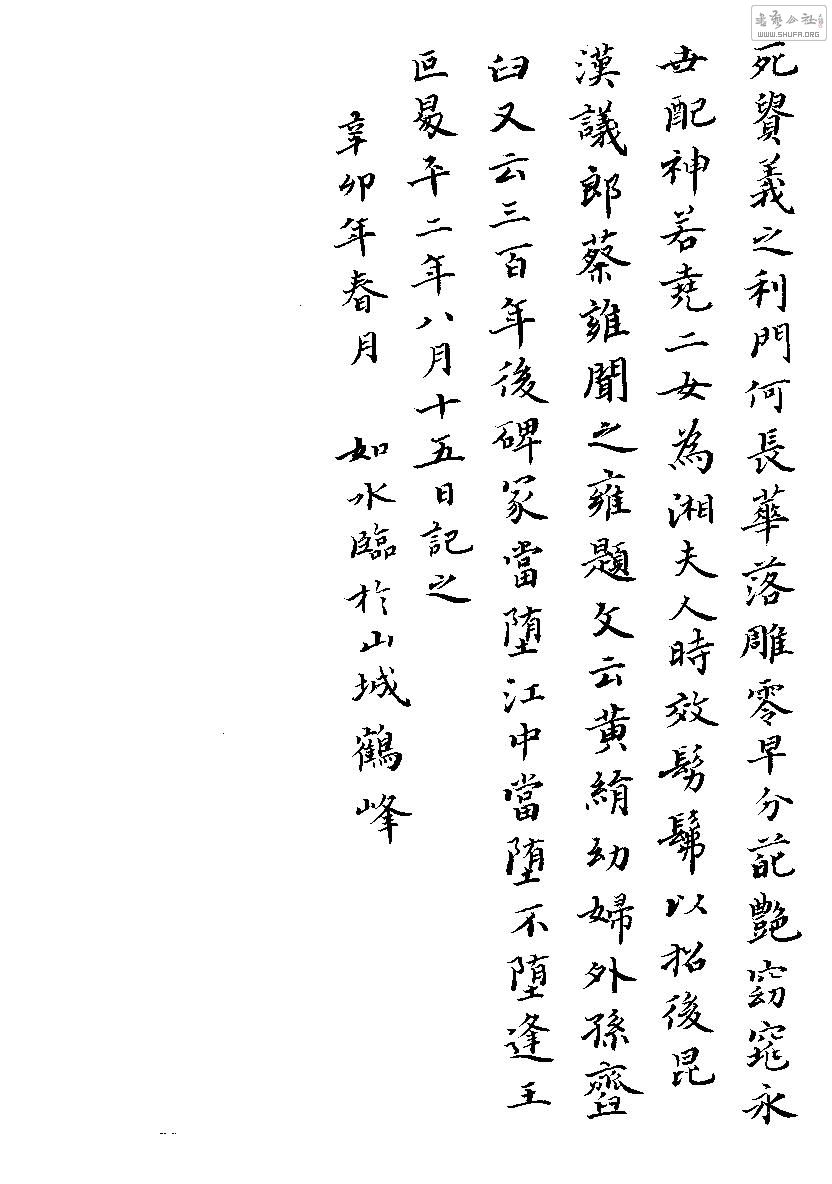 死貴義之利門何長華落雕零早分葩艷窈窕永
世配神若堯二女為湘夫人時效髣髴以招後昆
漢議郎蔡雍聞之雍題文云黃絹幼婦外孫齏
臼又云三百年後碑冢當墮江中當墮不墮逢王
叵昇平二年八月十五日記之
辛卯年春月 如水臨於山城鶴峰
書藝公社
WWW.SHUFA.ORG